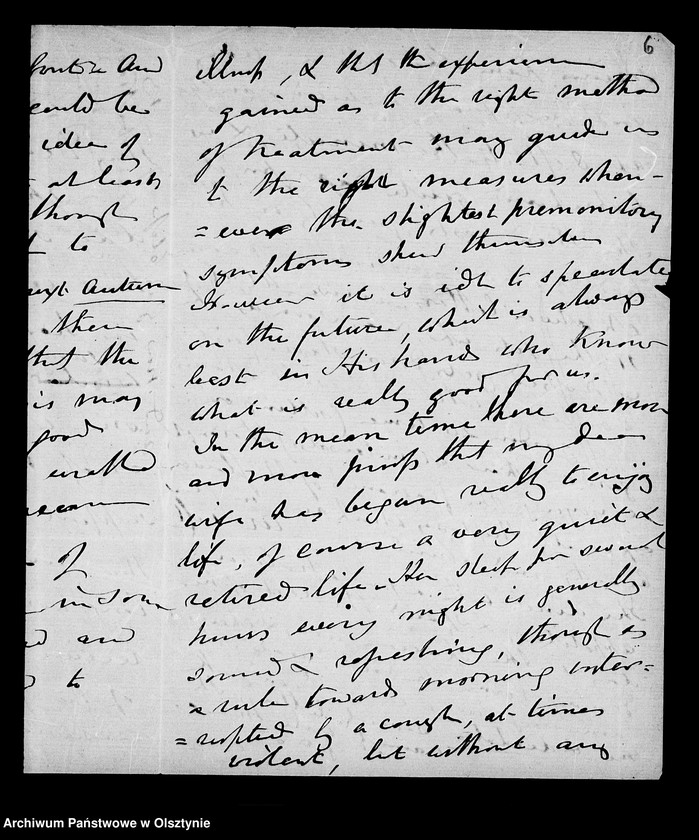 6
illness, & that the experience
gained as to the right method
of treatment may guide us
to the right measures when-
=ever the slightest premonitory
symptoms shew themselves
However it is idle to speculate
on the future, which is always
best in His hands who knows
what is really good for us.
In the mean time there are more
and more proofs that my dear
wife has begun really to enjoy
life, of course a very quiet &
retired life. Her sleep for several
hours every night is generally
sound & refreshing, though as
a rule towards morning inter-
=rupted by a cough, at times
violent, but without any
and
could be
idea of
at least
though
to
next autumn
them
that the
is may
good
of
in some
and
to
Archiwum Państwowe w Olsztynie